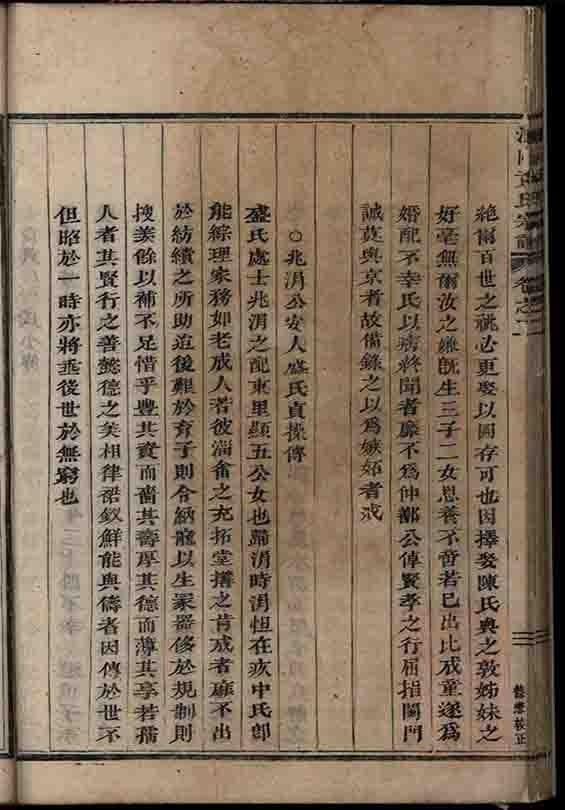 絶爾百世之祧必更娶以圖存可也因擇娶陳氏與之敦姊妹之
好毫無爾汝之嫌既生三子二女恩養不啻若已出比成童遂爲
婚配不幸氏以病終聞者靡不爲仲鄰公倬賢孝之行屈指閫門
誠莫與京者故備錄之以爲嫉妬者戒
○兆涓公安人盛氏貞操傳
盛氏處士兆涓之配東里顯五公女也歸涓時涓怛在疚中氏即
能綜理家務如老成人若彼淄畬之充拓堂搆之肯成者靡不出
於紡績之所助迨後艱於育子則令納寵以生冢器修於規制則
搜羨餘以補不足惜乎豐其資而嗇其壽厚其德而薄其享若孺
人者其賢行之善懿德之美相律裙釵鮮能與儔者因傳於世不
但昭於一時亦將垂後世於無窮也
氏宗譜
卷之
校正